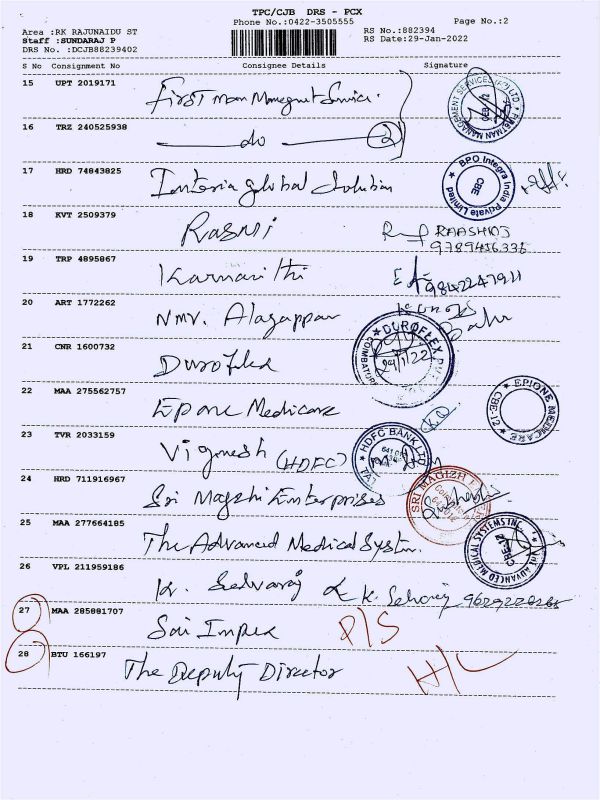 TPC/CJB DRS - PCX
Phone No.:0422-3505555 Page No.:2
Area :RK RAJUNAIDU ST RS No.:882394
Staff :SUNDARAJ P RS Date:29-Jan-2022
DRS No. :DCJB88239402
S No Consignment No Consignee Details Signature
15 UPT 2019171 First Man
MANAGEMENT SERVICES (P) LTD. * FIRSTMAN
16 TRZ 240525938 do 2
17 HRD 74843825 Interia global Solution
B.P.O Integra India Private Limited * CBE
18 KVT 2509379 Rasmi RAASHIOJ
9789456335
19 TRP 4895867 Karnarithi 9842247911
20 ART 1772262 Nmr. Alagappan
21 CNR 1600732 Duroflex
* DUROFLEX PVT COIMBATORE
29/1/22
22 MAA 275562757 Epone Medicare
* EPIONE MEDICARE CBE-12
23 TVR 2033159 Vignesh (HDFC)
* HDFC BANK LTD
24 HRD 711916967 Sri Magzhi Enterprises
SRI MAGIZH
25 MAA 277664185 The Advanced Medical System.
THE ADVANCED MEDICAL SYSTEMS INC. * CBE-12
26 VPL 211959186 K. Selvaraj K. Selvaraj 9629220265
27 MAA 285881707 Sai Impex P/S
28 BTU 166197 The Deputy Director H/L